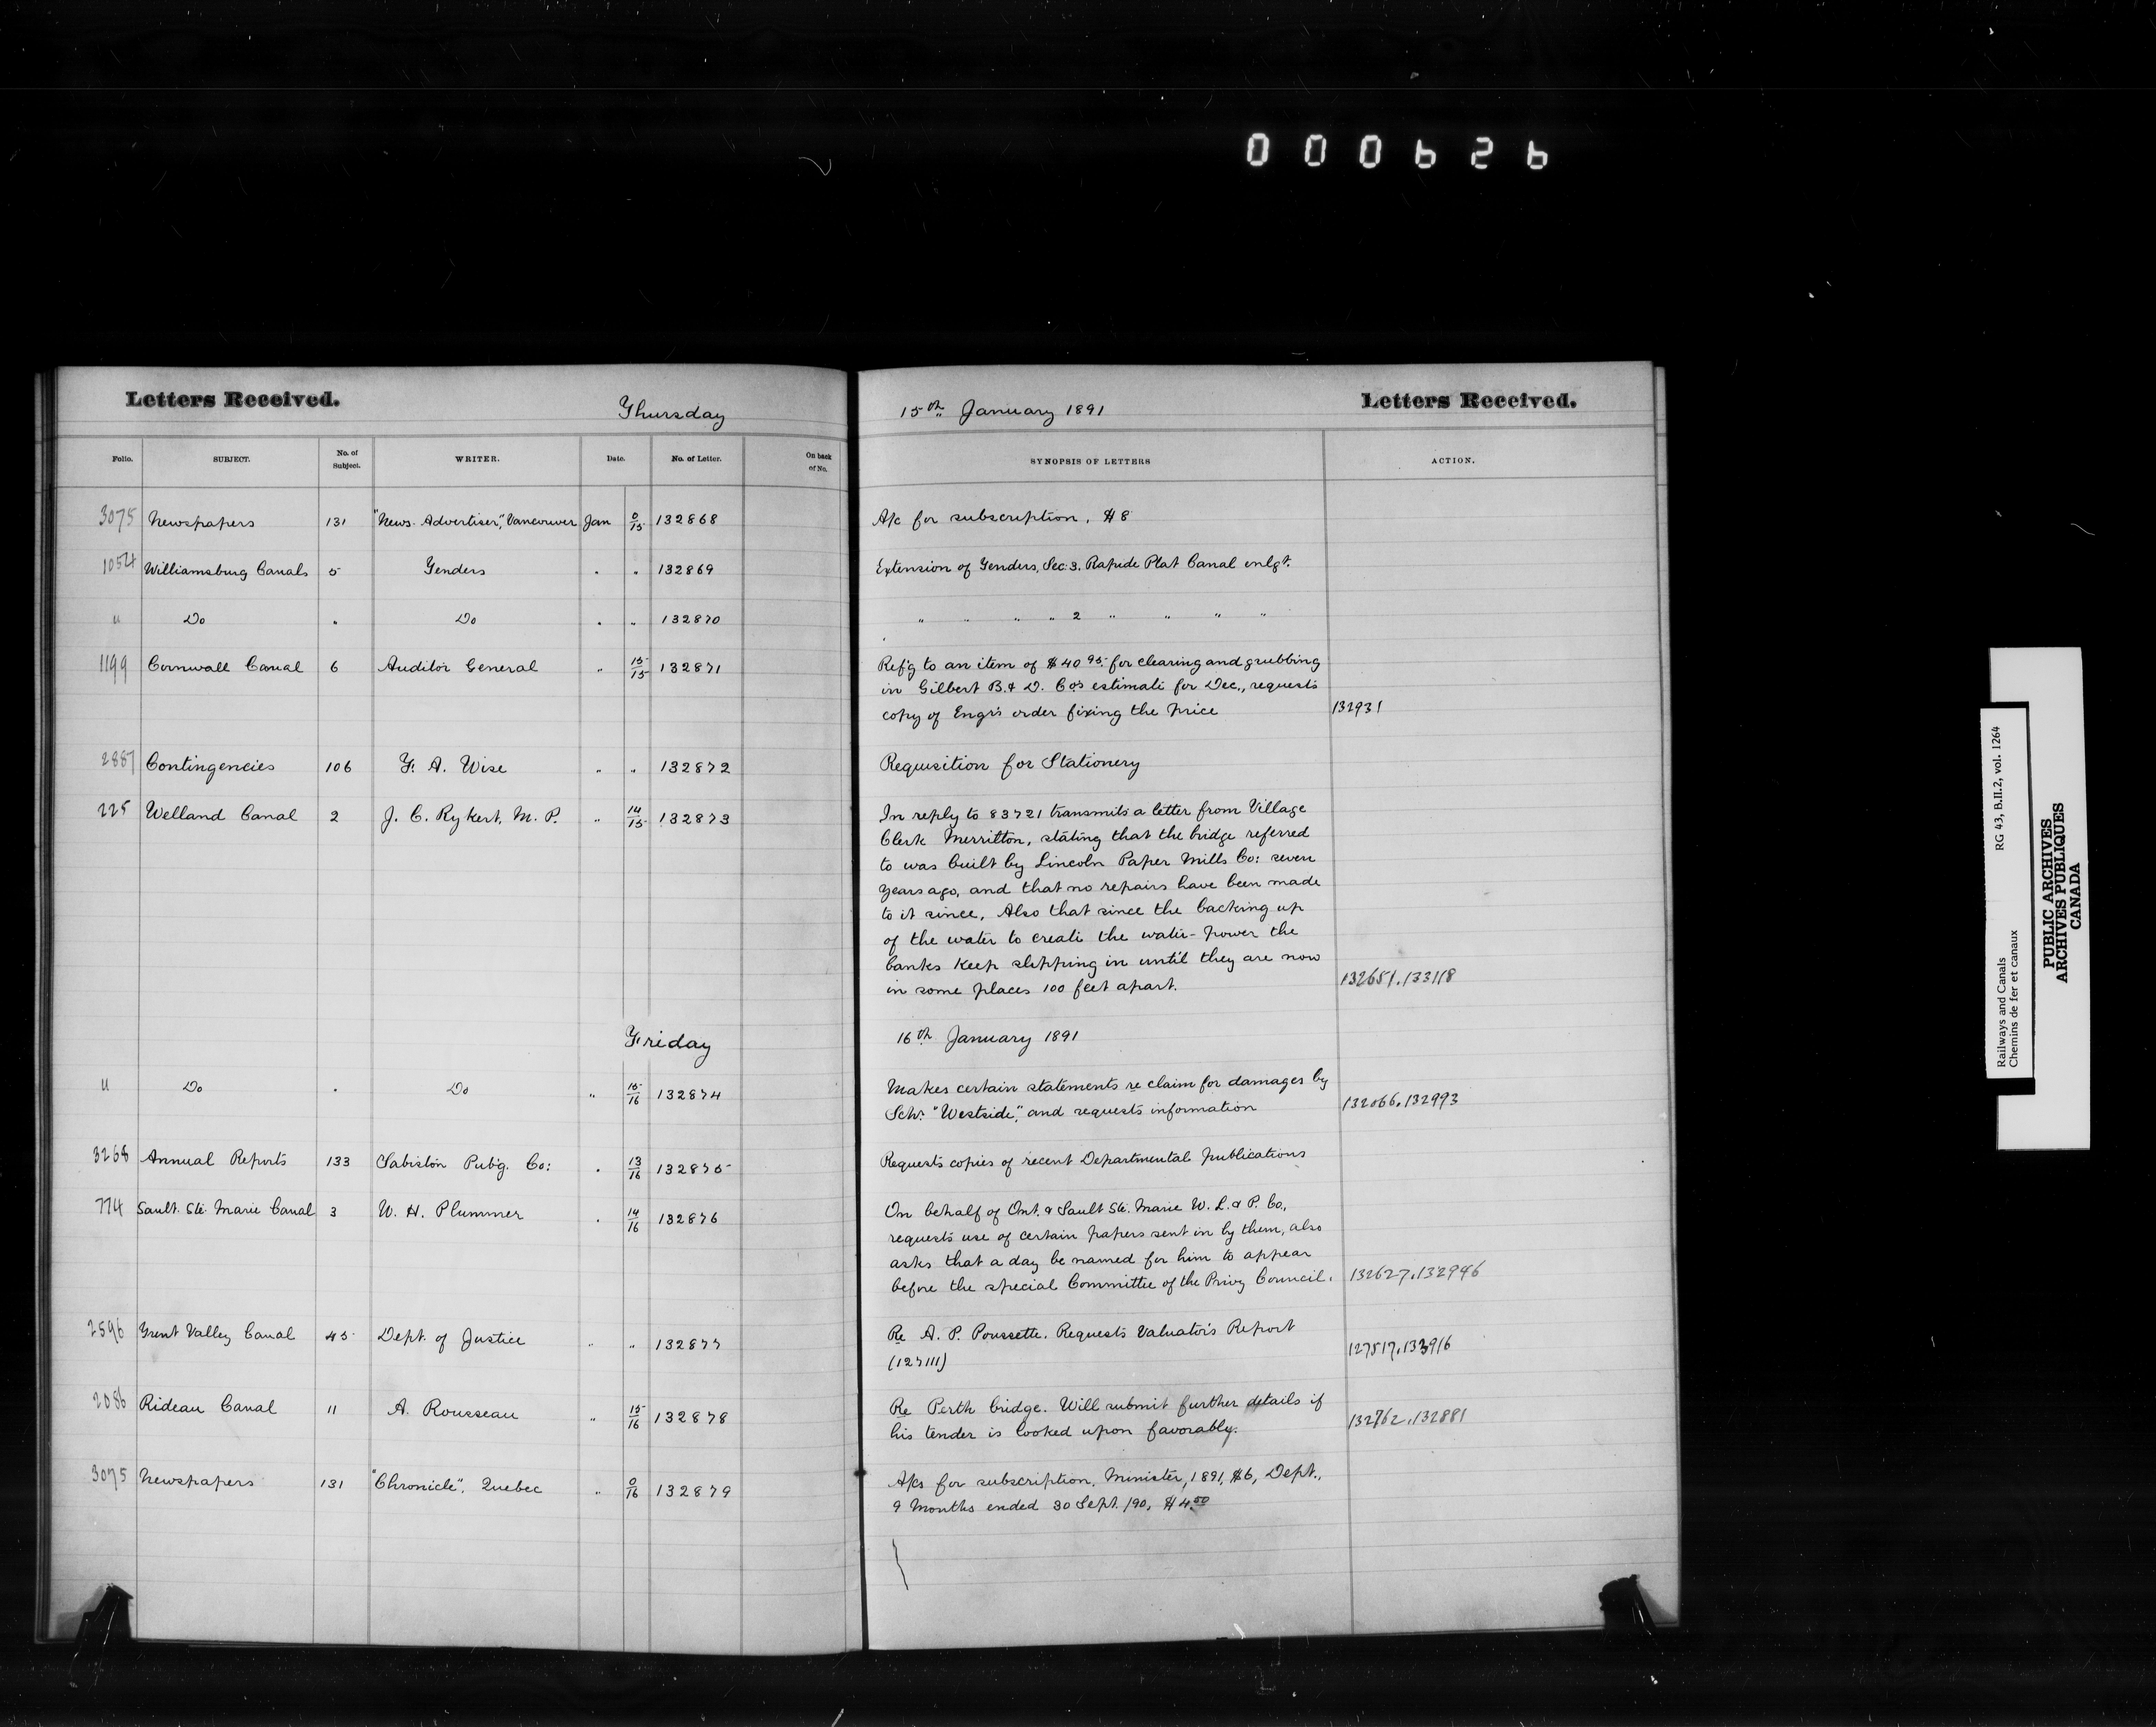 000626
Letters Received.
Thursday
15th January 1891
Letters Received.
Folio. SUBJECT. No. of Subject. WRITER. Date. No. of Letter. On back of No. SYNOPSIS OF LETTERS ACTION.
3075 Newspapers 131 "News-Advertiser", Vancouver Jan 0/15 132868 A/c for subscription, $8
1054 Williamsburg Canals 5 Tenders " " 132869 Extension of Tenders, Sec: 3. Rapide Plat Canal enlgt.
" Do " Do " " 132870 " " " " 2 " " " "
1199 Cornwall Canal 6 Auditor General " 15/15 132871 Ref'g to an item of $40 95. for clearing and grubbing
in Gilbert B. & D. Co's estimate for Dec., requests
copy of Engr's order fixing the price 132931
2887 Contingencies 106 F. A. Wise " " 132872 Requisition for Stationery
225 Welland Canal 2 J. C. Rykert, M. P. " 14/15 132873 In reply to 83721 transmits a letter from Village
Clerk Merritton, stating that the bridge referred
to was built by Lincoln Paper Mills Co: seven
years ago, and that no repairs have been made
to it since. Also that since the backing up
of the water to create the water-power the
banks keep slipping in until they are now
in some places 100 feet apart. 132651.133118
Friday 16th January 1891
" Do " Do " 15/16 132874 Makes certain statements re claim for damages by
Schr. "Westside", and requests information 132066.132993
3268 Annual Reports 133 Sabiston Pub'g. Co: " 13/16 132875 Requests copies of recent Departmental publications
774 Sault. Ste. Marie Canal 3 W. H. Plummer " 14/16 132876 On behalf of Ont. & Sault Ste. Marie W. L. & P. Co.,
requests use of certain papers sent in by them, also
asks that a day be named for him to appear
before the special Committee of the Privy Council. 132627.132996
2596 Trent Valley Canal 45 Dept. of Justice " " 132877 Re A. P. Poussette. Requests Valuator's Report
(127111) 127517.133916
2086 Rideau Canal 11 A. Rousseau " 15/16 132878 Re Perth bridge. Will submit further details if
his tender is looked upon favorably. 132762.132881
3075 Newspapers 131 "Chronicle", Quebec " 0/16 132879 A/cs for subscription, Minister, 1891, $6, Dept.,
9 Months ended 30 Sept. /90, $4.50
Railways and Canals RG 43, B.II.2, vol. 1264
Chemins de fer et canaux
PUBLIC ARCHIVES
ARCHIVES PUBLIQUES
CANADA